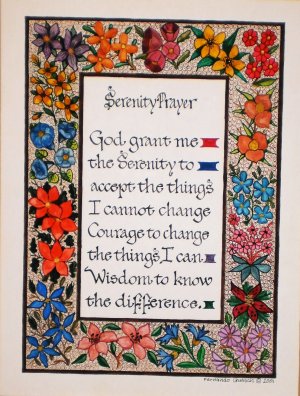 Serenity Prayer
God, grant me
the Serenity to
accept the things
I cannot change
Courage to change
the things I can
Wisdom to know
the difference.
Fernando © 2001